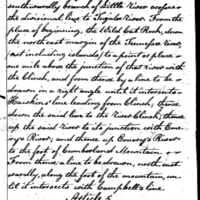 southwardly branch of Little River
the divisional line to Tugalo River. From the
place of beginning, the Wild Cat Rock, down
the north east margin of the Tennessee River,
(not including islands) to a point or place
one mile above the junction of that river with
the Clinch, and from thence by a line to be
drawn in a right angle until it intersects
Hawkins' line leading from Clinch, thence
down the said line to the River Clinch; thence
up the said river to its junction with Emo-
ry's River; and thence up Emory's River
to the foot of Cumberland Mountain.
From thence a line to be drawn, north east-
wardly, along the foot of the mountain, un-
til it intersects with Campbell's line.
Article